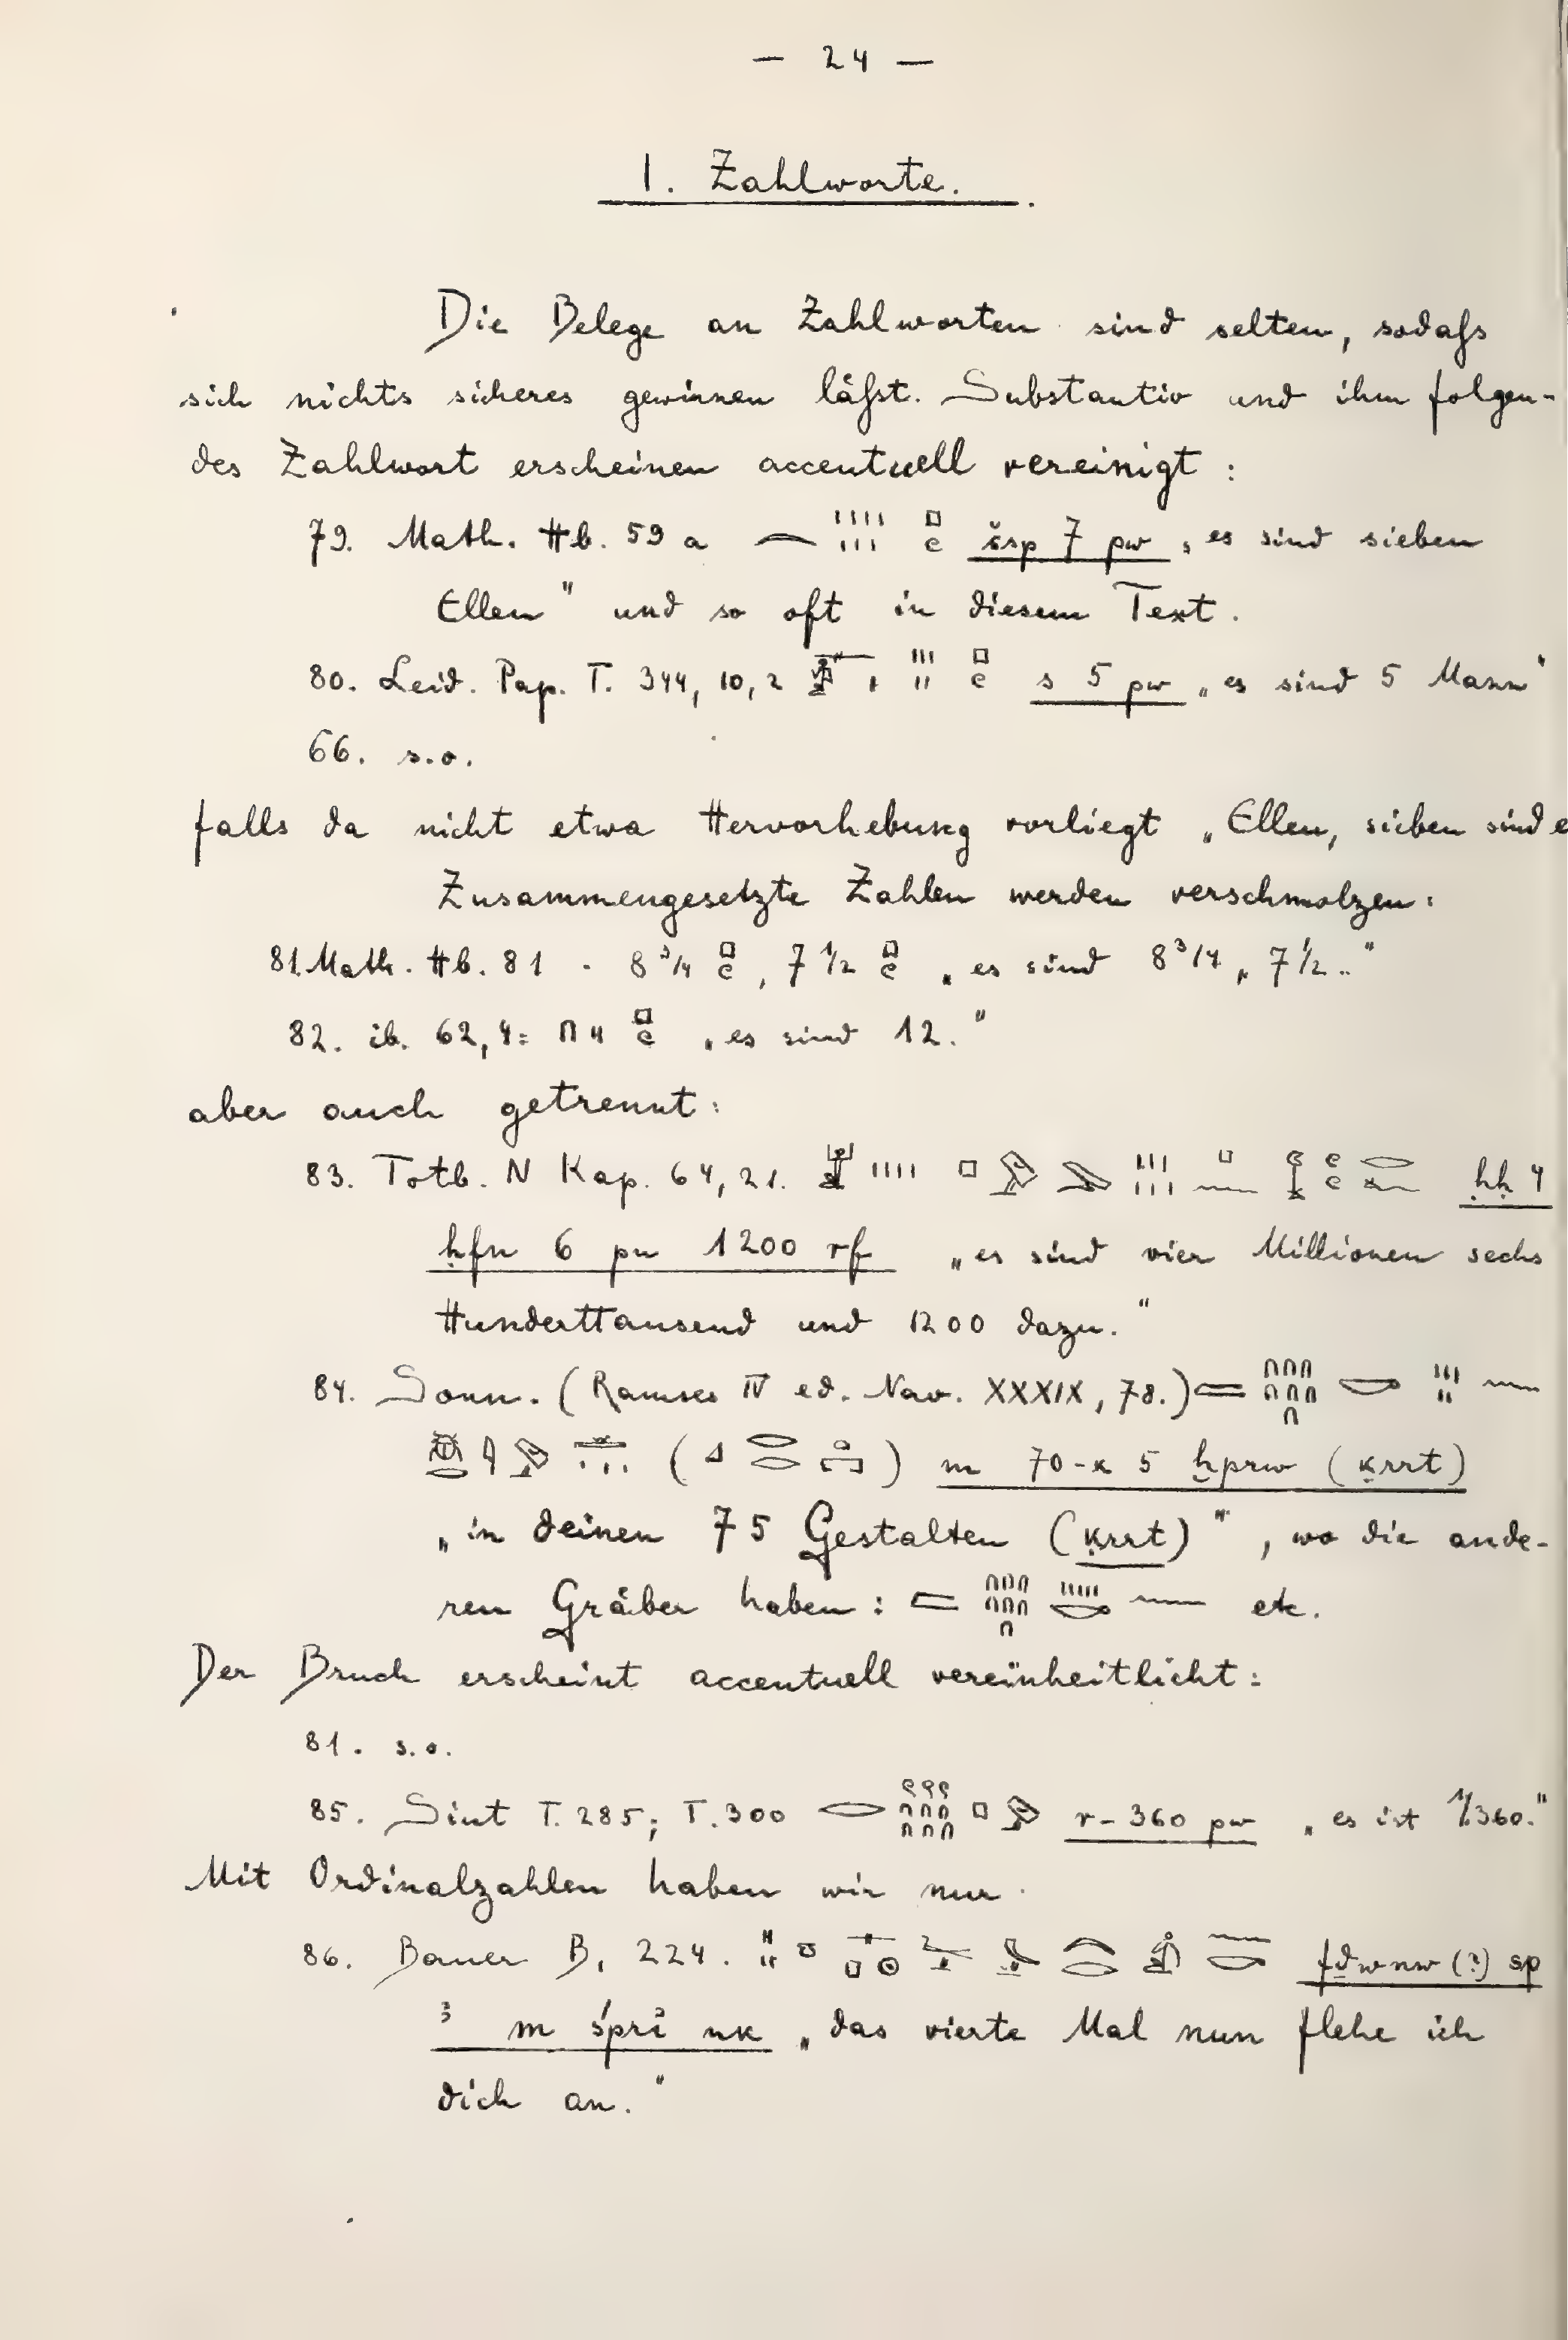 — 24 —
1. Zahlworte.
Die Belege an Zahlworten sind selten, sodaſs
sich nichts sicheres gewinnen läſst. Substantiv und ihm folgen-
des Zahlwort erscheinen accentuell vereinigt:
79. Math. Hb. 59 a šsp 7 pw „es sind sieben
Ellen" und so oft in diesem Text.
80. Leid. Pap. T. 344, 10, 2 s 5 pw „es sind 5 Mann"
66. s.o.
falls da nicht etwa Hervorhebung vorliegt „Ellen, sieben sind e
Zusammengesetzte Zahlen werden verschmolzen:
81. Math. Hb. 81 . 8 3/4 , 7 1/2 „es sind 8 3/4 „ 7 1/2 .."
82. ib. 62, 4: „es sind 12."
aber auch getrennt:
83. Totb. N Kap. 64, 21. ḥḥ 4
ḥfn 6 pw 1200 rf „es sind vier Millionen sechs
Hunderttausend und 1200 dazu."
84. Sonn. (Ramses IV ed. Nav. XXXIX, 78.)
( ) m 70-k 5 ḫprw (ḳrrt)
„in deinen 75 Gestalten (ḳrrt)", wo die ande-
ren Gräber haben: etc.
Der Bruch erscheint accentuell vereinheitlicht:
81. s.o.
85. Siut T. 285; T. 300 r-360 pw „es ist 1/360."
Mit Ordinalzahlen haben wir nur
86. Bauer B, 224. fdwnw (?) sp
ꜣ m śpri nk „das vierte Mal nun flehe ich
dich an."